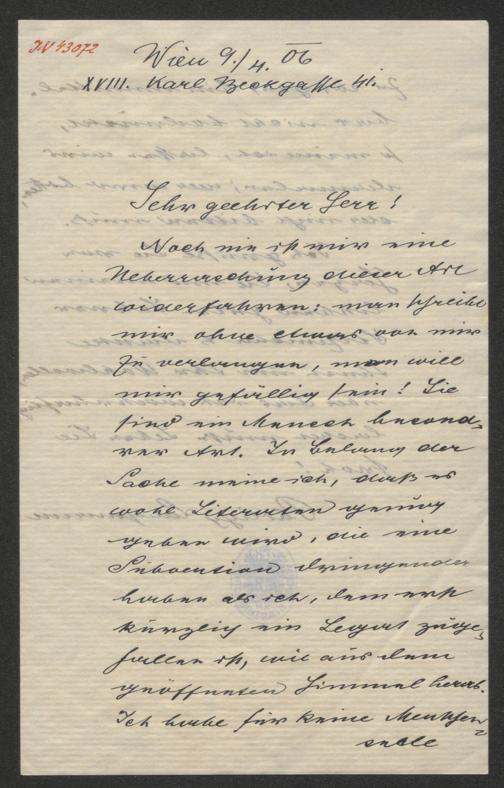 JN 43072
Wien 9./4. 06
XVIII. Karl Beckgasse 41.
Sehr geehrter Herr!
Noch nie ist mir eine
Ueberraschung dieser Art
widerfahren: man schreibt
mir ohne etwas von mir
zu verlangen, man will
mir gefällig sein! Sie
sind ein Mensch besond-
rer Art. In Belang der
Sache meine ich, daß es
wohl Literaten genug
geben wird, die eine
Subvention dringender
haben als ich, dem erst
kürzlich ein Legat zuge-
fallen ist, wie aus dem
geöffneten Himmel herab.
Ich habe für keine Menschen-
seele